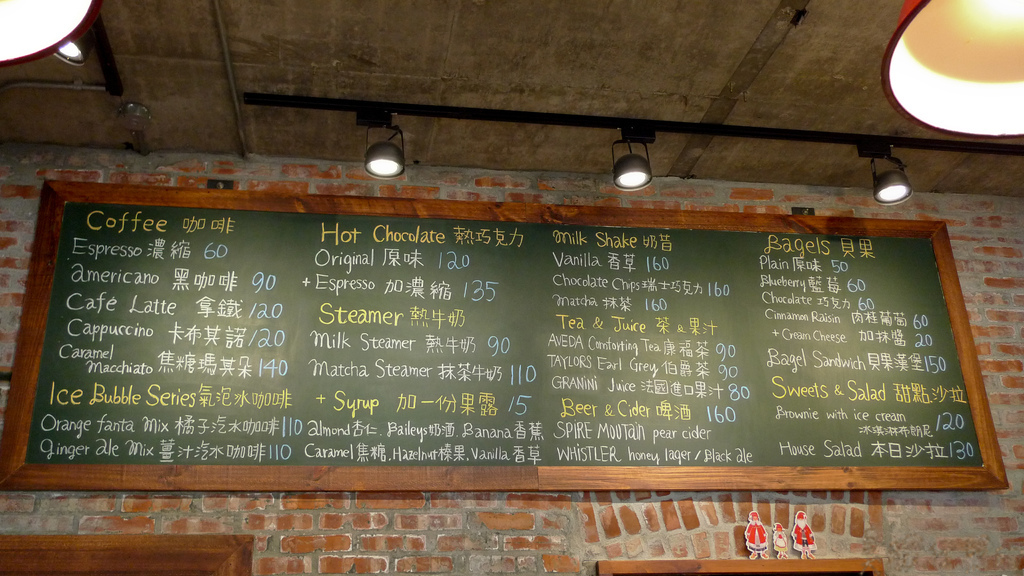 Coffee 咖啡
Espresso 濃縮 60
americano 黑咖啡 90
Café Latte 拿鐵 120
Cappuccino 卡布其諾 120
Caramel
Macchiato 焦糖瑪其朵 140
Ice Bubble Series 氣泡冰咖啡
Orange fanta Mix 橘子汽水咖啡 110
Ginger ale Mix 薑汁汽水咖啡 110
Hot Chocolate 熱巧克力
Original 原味 120
+ Espresso 加濃縮 135
Steamer 熱牛奶
Milk Steamer 熱牛奶 90
Matcha Steamer 抹茶牛奶 110
+ Syrup 加一份果露 15
almond杏仁, Baileys奶酒, Banana香蕉
Caramel焦糖, Hazelnut榛果, Vanilla香草
Milk Shake 奶昔
Vanilla 香草 160
Chocolate Chips 瑞士巧克力 160
Matcha 抹茶 160
Tea & Juice 茶 & 果汁
AVEDA Comforting Tea 康福茶 90
TAYLORS Earl Grey 伯爵茶 90
GRANINI Juice 法國進口果汁 80
Beer & Cider 啤酒 160
SPIRE MOUTAIN pear cider
WHISTLER honey lager / Black ale
Bagels 貝果
Plain 原味 50
Blueberry 藍莓 60
Chocolate 巧克力 60
Cinnamon Raisin 肉桂葡萄 60
+ Cream Cheese 加抹醬 20
Bagel Sandwich 貝果漢堡 150
Sweets & Salad 甜點沙拉
Brownie with ice cream
冰淇淋布朗尼 120
House Salad 本日沙拉 130